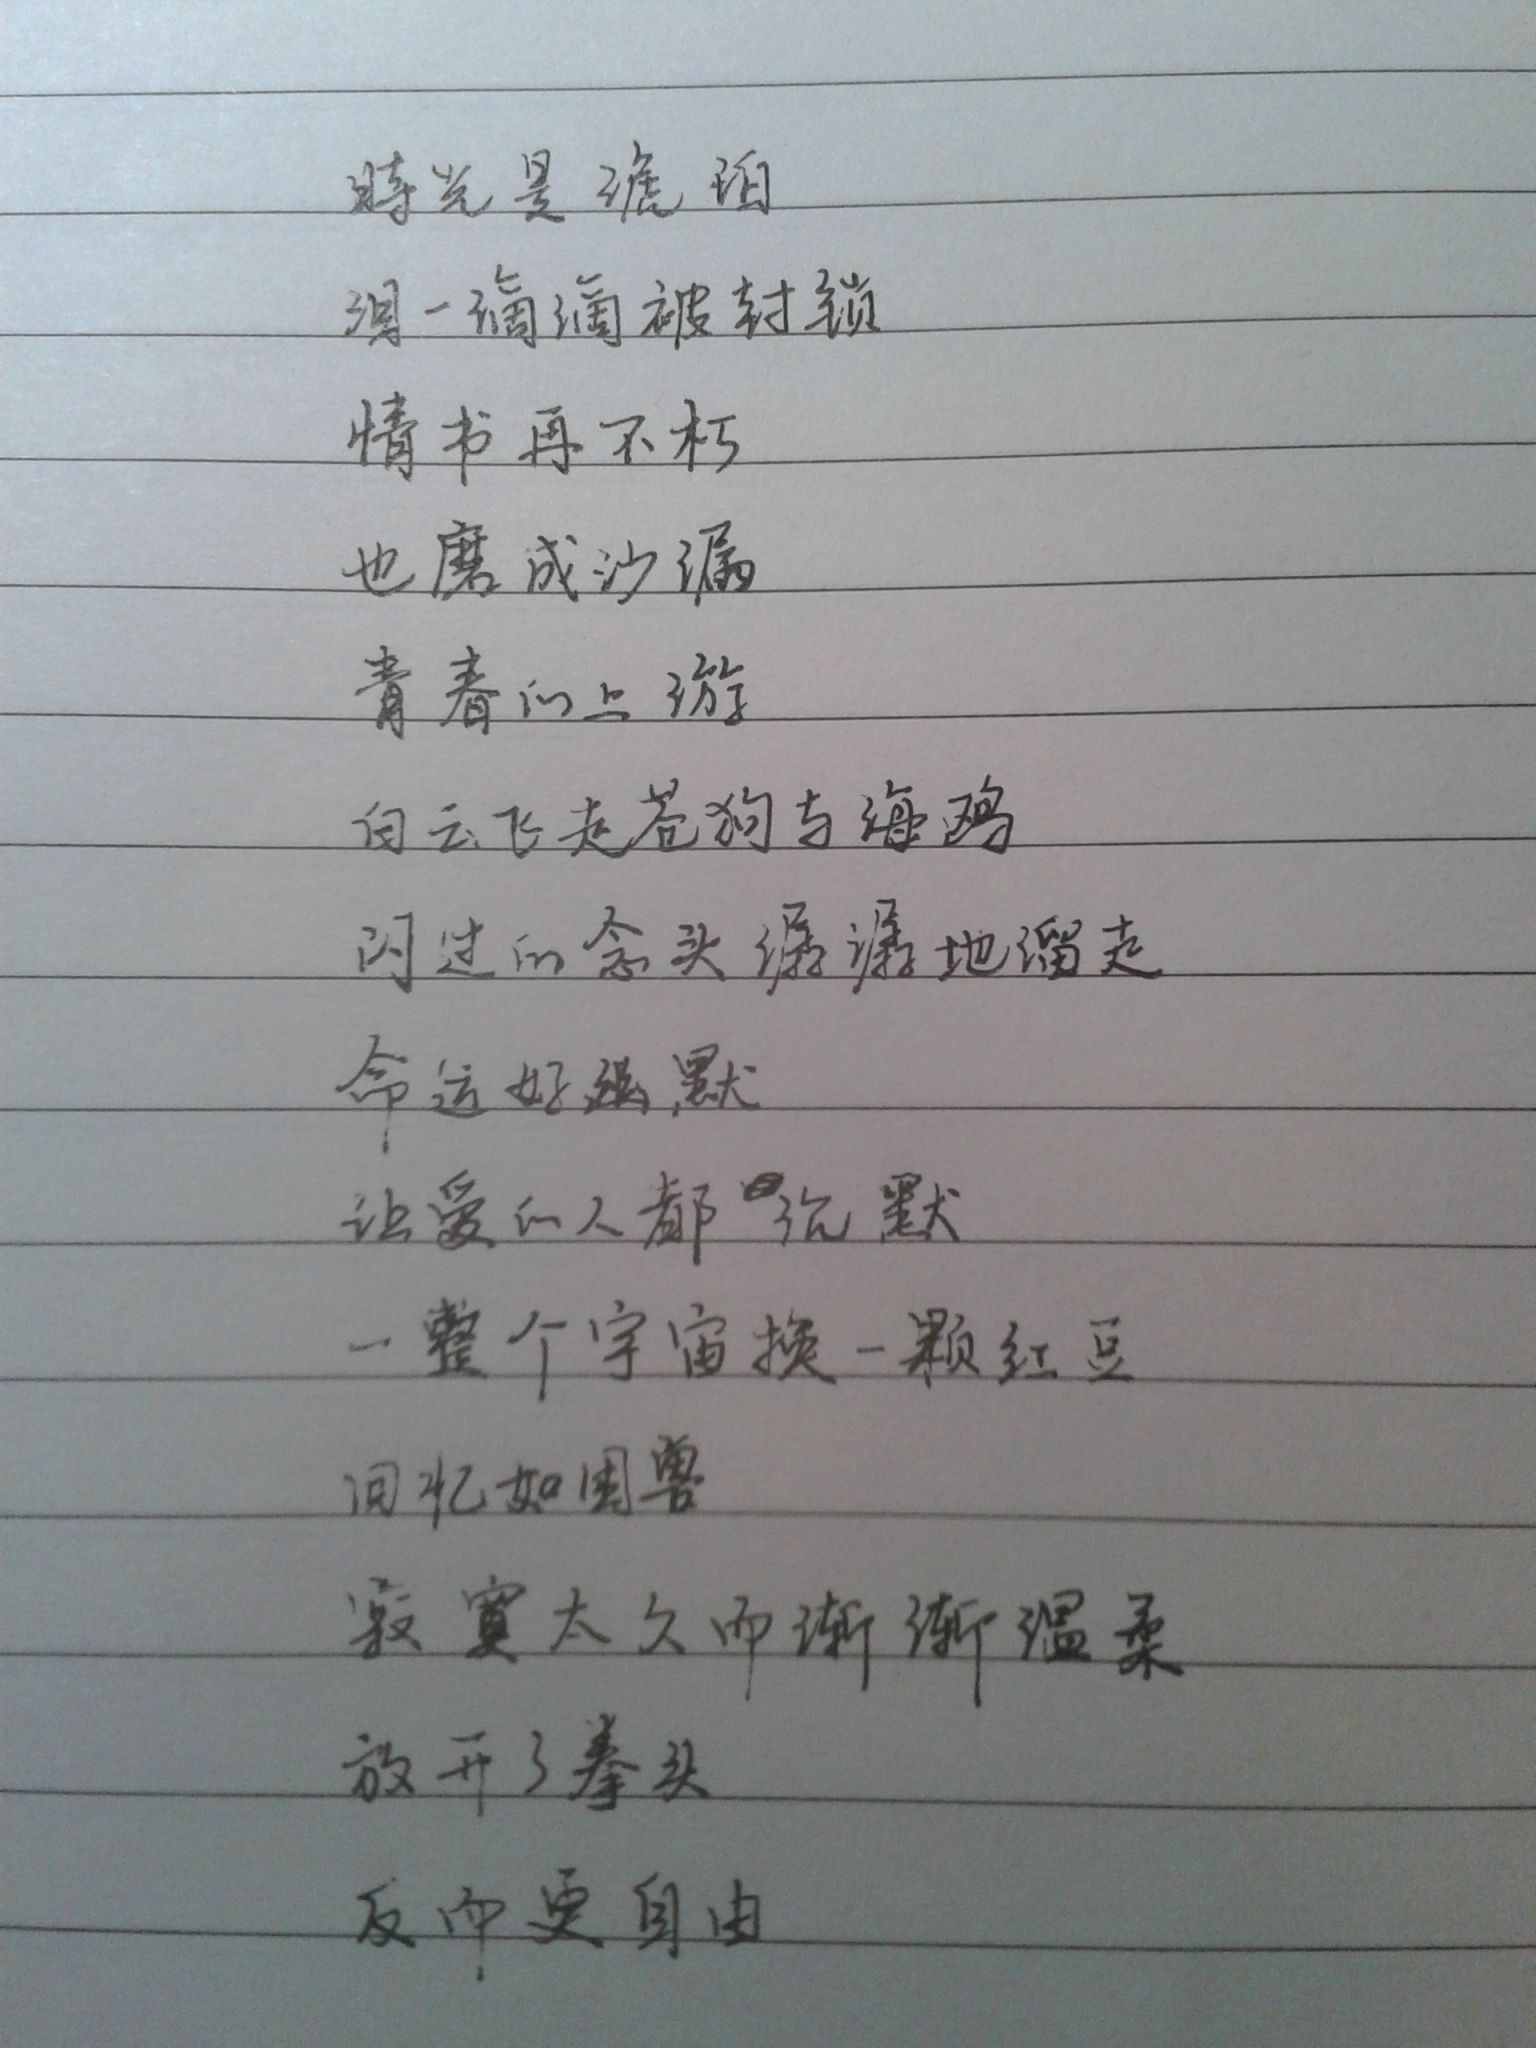 時光是琥珀
泪一滴滴被封锁
情书再不朽
也磨成沙漏
青春的上游
白云飞走苍狗与海鸥
闪过的念头潺潺地溜走
命运好幽默
让爱的人都沉默
一整个宇宙换一颗红豆
回忆如困兽
寂寞太久而渐渐温柔
放开了拳头
反而更自由